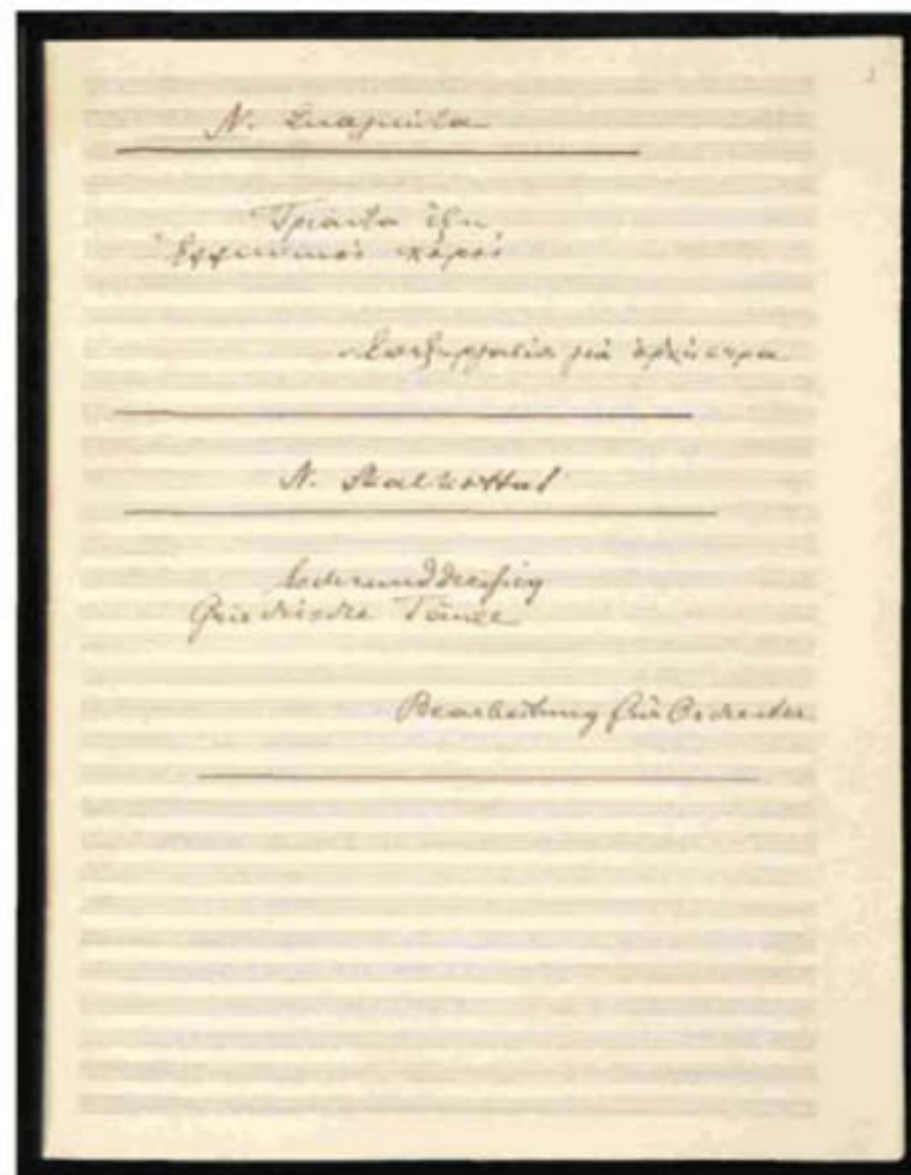 Ν. Σκαλκώτα
Τριάντα ἕξη
Ἑλληνικοί χοροί
Ἐπεξεργασία γιά ὀρχήστρα
N. Skalkottas
Sechsunddreißig
Griechische Tänze
Bearbeitung für Orchester